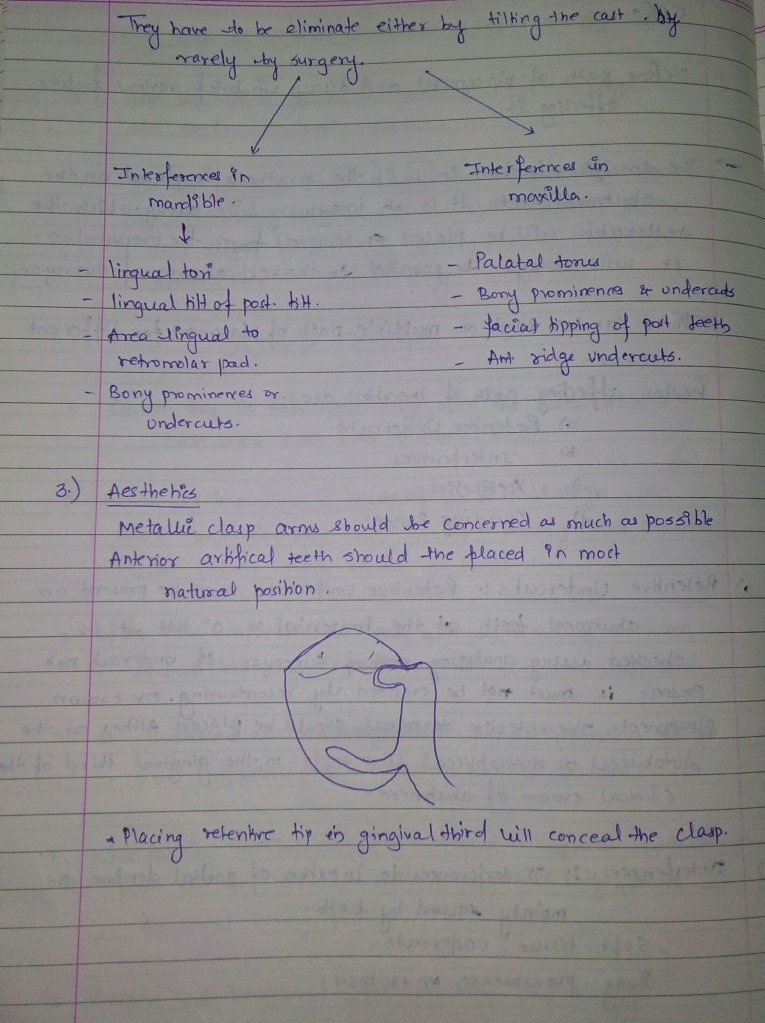 They have to be eliminate either by tilting the cast. by
rarely by surgery.
Interferences in
mandible.
- lingual tori
- lingual tilt of post. tilt.
- Area lingual to
retromolar pad.
- Bony prominences or
undercuts.
Interferences in
maxilla.
- Palatal torus
- Bony prominences & undercuts
- facial tipping of post teeth
- Ant. ridge undercuts.
3.) Aesthetics
Metallic clasp arms should be concerned as much as possible
Anterior artifical teeth should the placed in most
natural position.
* Placing retentive tip in gingival third will conceal the clasp.